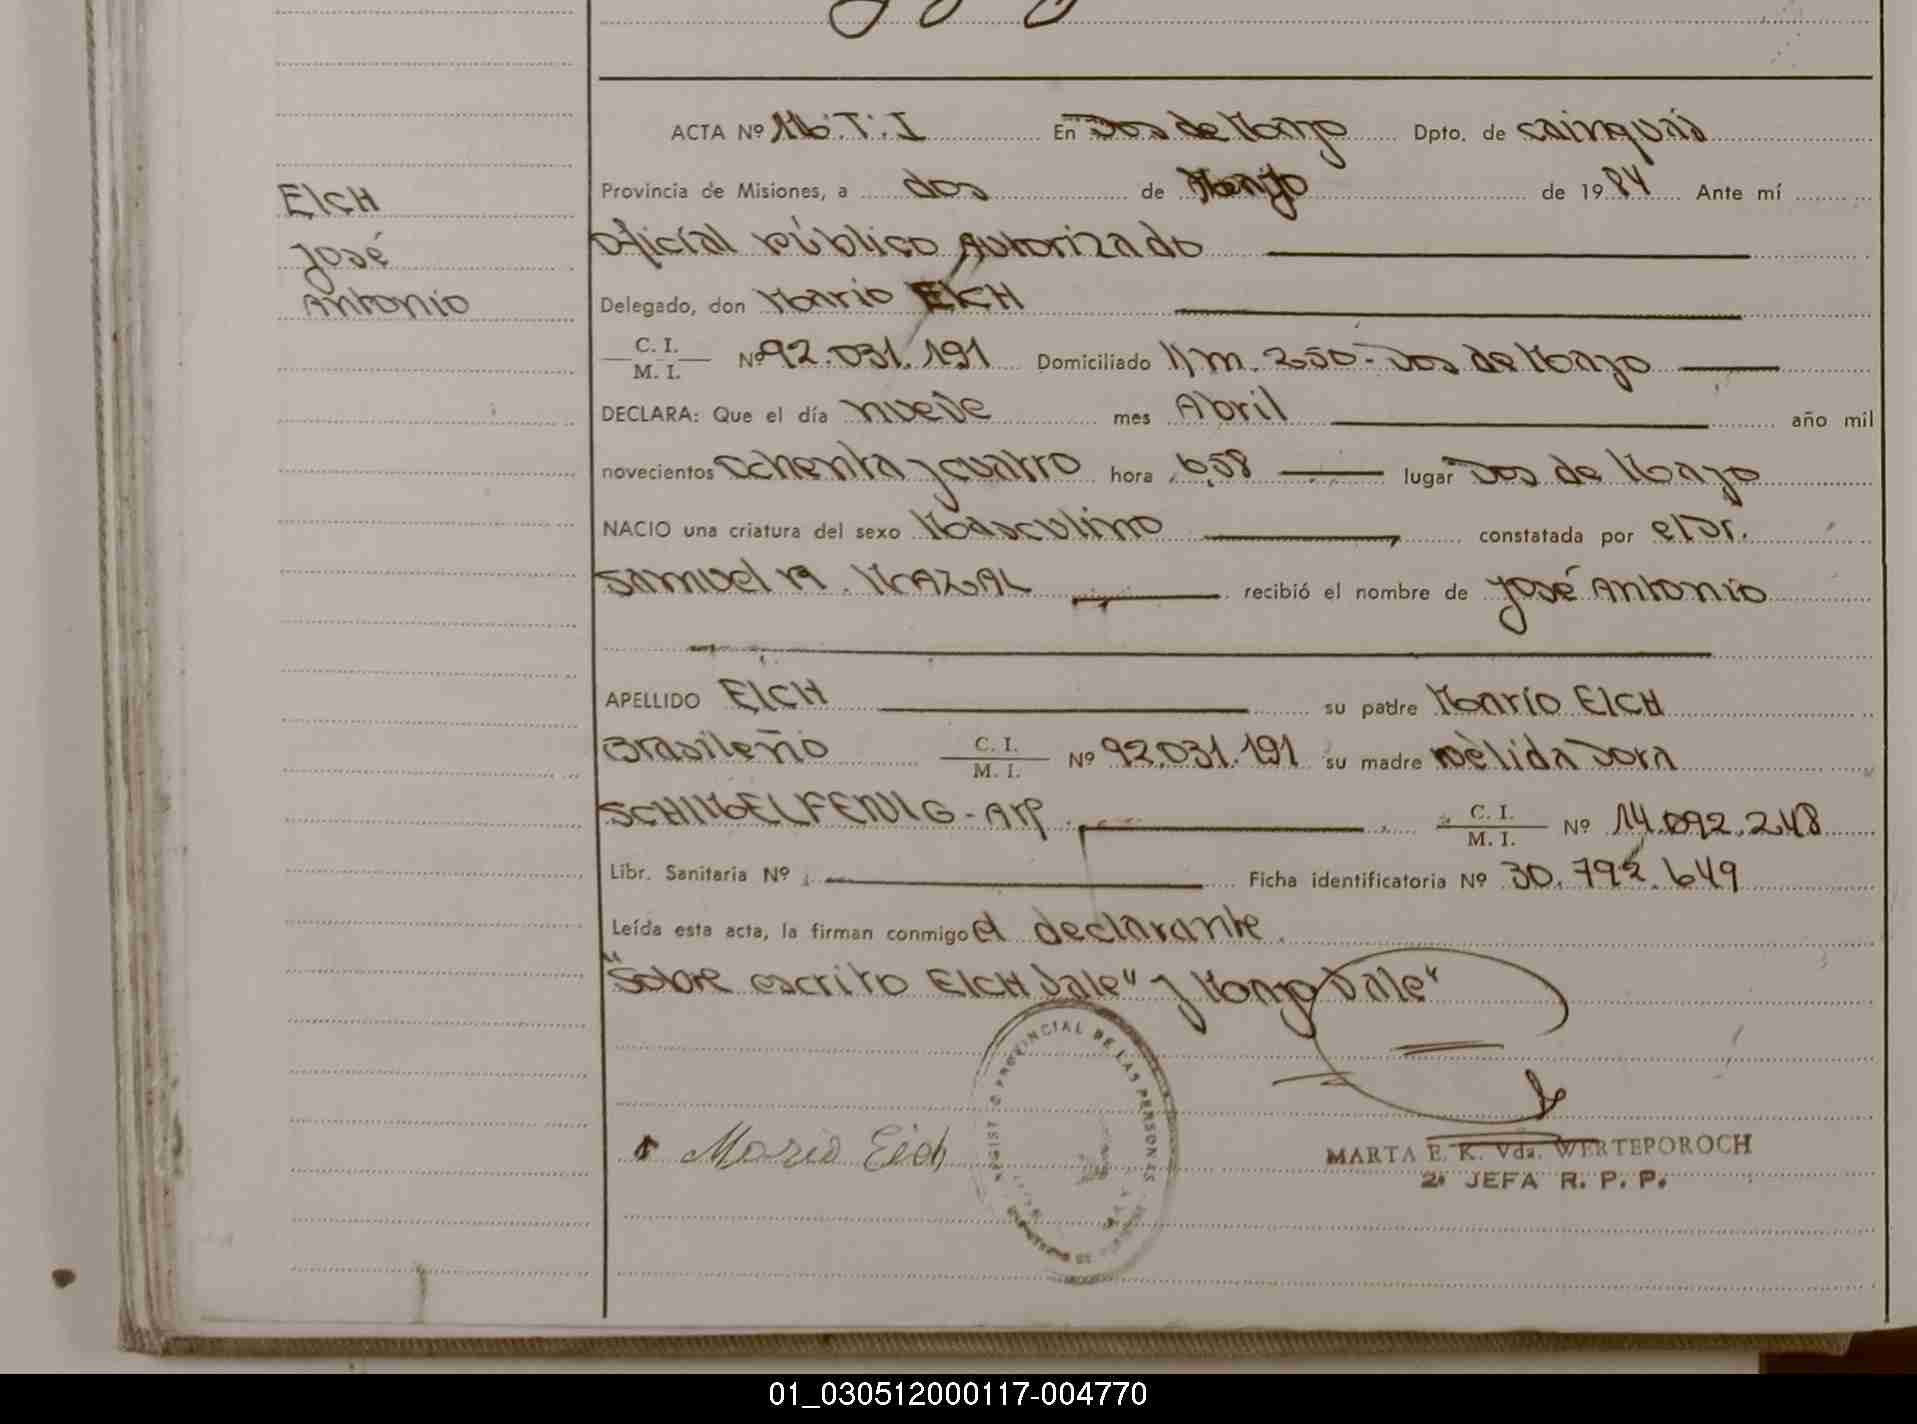 ACTA Nº 116. T. I En Dos de Mayo Dpto. de Cainguás
Provincia de Misiones, a dos de Mayo de 1984 Ante mí
EICH
José
Antonio
Oficial Público Autorizado
Delegado, don Mario EICH
C. I. / M. I. Nº 92.031.191 Domiciliado Km. 250 - Dos de Mayo
DECLARA: Que el día nueve mes Abril año mil
novecientos ochenta y cuatro hora 6,58 lugar Dos de Mayo
NACIO una criatura del sexo Masculino constatada por el Dr.
Samuel M. MAZAL recibió el nombre de José Antonio
APELLIDO EICH su padre Mario EICH
Brasileño C. I. / M. I. Nº 92.031.191 su madre Nélida Dora
SCHIMELFENIG - Arg. C. I. / M. I. Nº 14.092.248
Libr. Sanitaria Nº Ficha identificatoria Nº 30.792.649
Leída esta acta, la firman conmigo el declarante
"Sobre escrito EICH Vale" y Mayo Vale"
REGISTRO PROVINCIAL DE LAS PERSONAS
Mario Eich
MARTA E. K. Vda. WERTEPOROCH
2ª JEFA R. P. P.
01_030512000117-004770